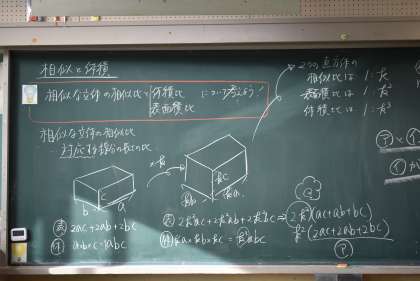 相似と体積
相似な立体の相似比と 体積比 について考えよう!
表面積比
相似な立体の相似比
…対応する部分の長さの比
b c a
表 2ac+2ab+2bc
体 a×b×c=abc
×k
kb kc ka
表 2k²ac+2k²ab+2k²bc ⇒ 2k²(ac+ab+bc)
体 ka×kb×kc=k³abc
k²(2ac+2ab+2bc)
ア
2つの立方体の
相似比は 1:k
表面積比は 1:k²
体積比は 1:k³
ア×イ
イ